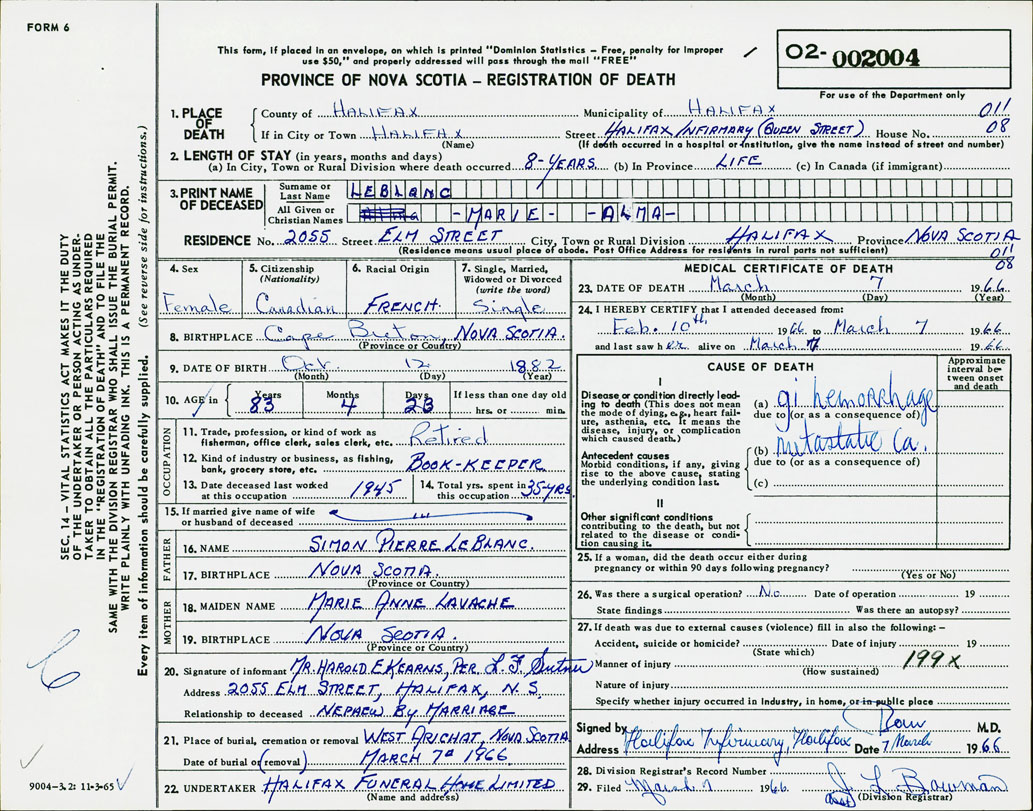 FORM 6
This form, if placed in an envelope, on which is printed "Dominion Statistics – Free, penalty for improper
use $50," and properly addressed will pass through the mail "FREE"
PROVINCE OF NOVA SCOTIA – REGISTRATION OF DEATH
02- 002004
For use of the Department only
1. PLACE OF DEATH County of HALIFAX Municipality of HALIFAX 011
If in City or Town HALIFAX Street HALIFAX INFIRMARY (QUEEN STREET) House No. 08
(Name) (If death occurred in a hospital or institution, give the name instead of street and number)
2. LENGTH OF STAY (in years, months and days)
(a) In City, Town or Rural Division where death occurred 8-YEARS (b) In Province LIFE (c) In Canada (if immigrant)
3. PRINT NAME OF DECEASED Surname or Last Name LEBLANC
All Given or Christian Names -MARIE- -ALMA-
RESIDENCE No. 2055 Street ELM STREET City, Town or Rural Division HALIFAX Province NOVA SCOTIA
(Residence means usual place of abode. Post Office Address for residents in rural parts not sufficient) 011
08
4. Sex Female
5. Citizenship (Nationality) Canadian
6. Racial Origin FRENCH
7. Single, Married, Widowed or Divorced (write the word) Single
8. BIRTHPLACE Cape Breton, NOVA SCOTIA.
(Province or Country)
9. DATE OF BIRTH Oct. 12 1882
(Month) (Day) (Year)
10. AGE in Years 83 Months 4 Days 23 If less than one day old
hrs. or min.
OCCUPATION
11. Trade, profession, or kind of work as fisherman, office clerk, sales clerk, etc. Retired
12. Kind of industry or business, as fishing, bank, grocery store, etc. BOOK-KEEPER
13. Date deceased last worked at this occupation 1945
14. Total yrs. spent in this occupation 35 YRS
15. If married give name of wife or husband of deceased
FATHER
16. NAME SIMON PIERRE LEBLANC.
17. BIRTHPLACE NOVA SCOTIA.
(Province or Country)
MOTHER
18. MAIDEN NAME MARIE ANNE LAVACHE
19. BIRTHPLACE NOVA SCOTIA.
(Province or Country)
20. Signature of informant MR. HAROLD E KEARNS, PER. L. F.
Address 2055 ELM STREET, HALIFAX, N. S.
Relationship to deceased NEPHEW BY MARRIAGE
21. Place of burial, cremation or removal WEST ARICHAT, NOVA SCOTIA
Date of burial or (removal) MARCH 7th 1966
22. UNDERTAKER HALIFAX FUNERAL HOME LIMITED
(Name and address)
MEDICAL CERTIFICATE OF DEATH
23. DATE OF DEATH March 7 1966
(Month) (Day) (Year)
24. I HEREBY CERTIFY that I attended deceased from:
Feb. 10th 1966 to March 7 1966
and last saw her alive on March 7 1966
CAUSE OF DEATH
Approximate interval between onset and death
I
Disease or condition directly leading to death (This does not mean the mode of dying, e.g., heart failure, asthenia, etc. It means the disease, injury, or complication which caused death.)
(a) gi hemorrhage
due to (or as a consequence of)
Antecedent causes
Morbid conditions, if any, giving rise to the above cause, stating the underlying condition last.
(b) metastatic Ca.
due to (or as a consequence of)
(c)
II
Other significant conditions
contributing to the death, but not related to the disease or condition causing it.
25. If a woman, did the death occur either during
pregnancy or within 90 days following pregnancy?
(Yes or No)
26. Was there a surgical operation? No Date of operation 19
State findings Was there an autopsy?
27. If death was due to external causes (violence) fill in also the following:–
Accident, suicide or homicide? Date of injury 19
(State which)
Manner of injury 199X
(How sustained)
Nature of injury
Specify whether injury occurred in Industry, in home, or in public place
Signed by M.D.
Address Halifax Infirmary, Halifax Date 7 March 1966
28. Division Registrar's Record Number
29. Filed March 7 1966. J L Bowman
asst (Division Registrar)
SEC. 14 – VITAL STATISTICS ACT MAKES IT THE DUTY
OF THE UNDERTAKER OR PERSON ACTING AS UNDER-
TAKER TO OBTAIN ALL THE PARTICULARS REQUIRED
IN THE "REGISTRATION OF DEATH" AND TO FILE THE
SAME WITH THE DIVISION REGISTRAR WHO SHALL ISSUE THE BURIAL PERMIT.
WRITE PLAINLY WITH UNFADING INK. THIS IS A PERMANENT RECORD.
Every item of information should be carefully supplied. (See reverse side for instructions.)
6
9004-3.2: 11-3-65